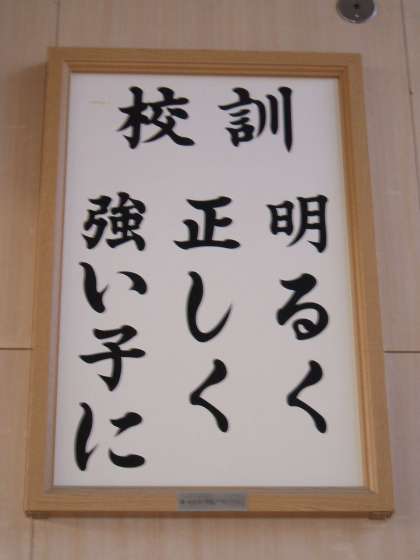 校訓
明るく
正しく
強い子に